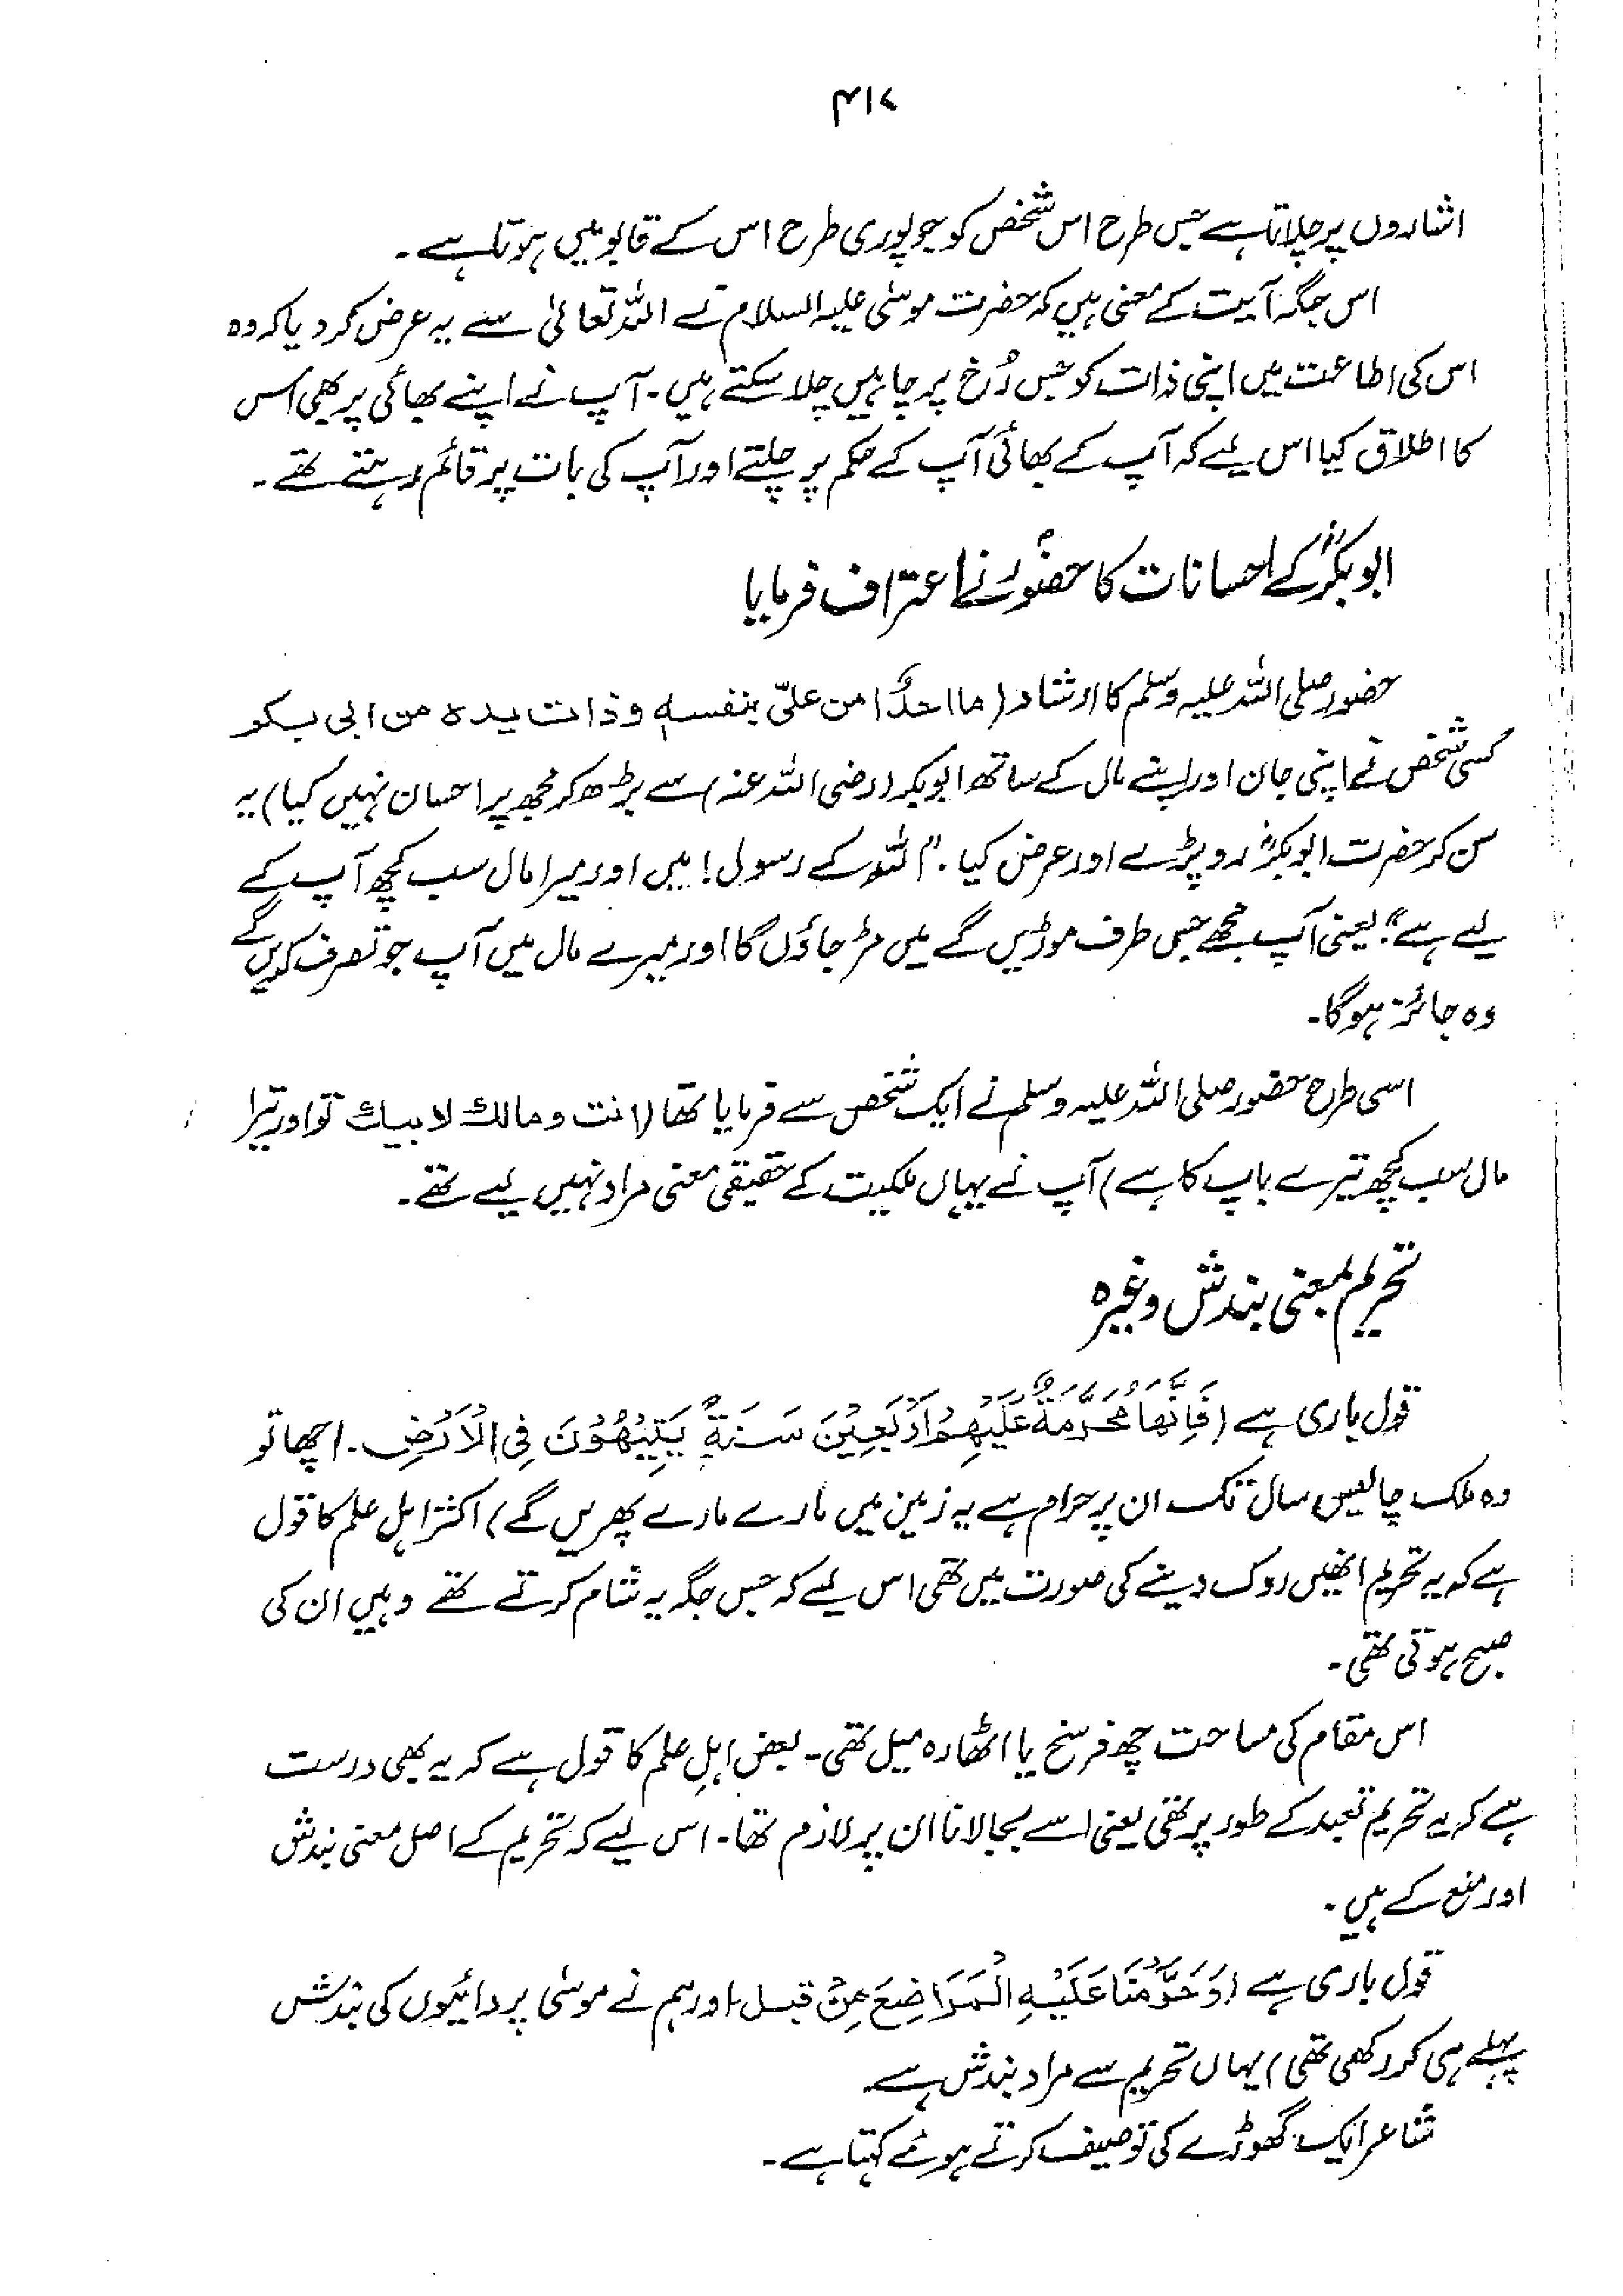 ۴۱۷
اشاروں پر چلاتا ہے جس طرح اس شخص کو جو پوری طرح اس کے قابو میں ہوتا ہے۔
اس جگہ آیت کے معنی ہیں کہ حضرت موسیٰ علیہ السلام نے اللہ تعالیٰ سے یہ عرض کر دیا کہ وہ
اس کی اطاعت میں اپنی ذات کو جس رُخ پر چاہیں چلا سکتے ہیں۔ آپ نے اپنے بھائی پر بھی اس
کا اطلاق کیا اس لیے کہ آپ کے بھائی آپ کے حکم پر چلتے اور آپ کی بات پر قائم رہتے تھے۔
ابوبکرؓ کے احسانات کا حضورؐ نے اعتراف فرمایا
حضور صلی اللہ علیہ وسلم کا ارشاد (ما احدٌ امن علیّ بنفسہٖ و ذات یدہ من ابی بکر
کسی شخص نے اپنی جان اور اپنے مال کے ساتھ ابوبکر (رضی اللہ عنہ) سے بڑھ کر مجھ پر احسان نہیں کیا) یہ
سن کر حضرت ابوبکرؓ رو پڑے اور عرض کیا۔ "اللہ کے رسول! میں اور میرا مال سب کچھ آپ کے
لیے ہے" یعنی آپ مجھے جس طرف موڑیں گے میں مڑ جاؤں گا اور میرے مال میں آپ جو تصرف کریں گے
وہ جائز ہوگا۔
اسی طرح حضور صلی اللہ علیہ وسلم نے ایک شخص سے فرمایا تھا (انت و مالک لابیک تو اور تیرا
مال سب کچھ تیرے باپ کا ہے) آپ نے یہاں ملکیت کے حقیقی معنی مراد نہیں لیے تھے۔
تحریم بمعنی بندش وغیرہ
قول باری ہے (فَاِنَّھَا مُحَرَّمَۃٌ عَلَیْھِمْ اَرْبَعِیْنَ سَنَۃً یَتِیْھُوْنَ فِی الْاَرْضِ۔ اچھا تو
وہ ملک چالیس سال تک ان پر حرام ہے یہ زمین میں مارے مارے پھریں گے) اکثر اہل علم کا قول
ہے کہ یہ تحریم انھیں روک دینے کی صورت میں تھی اس لیے کہ جس جگہ یہ شام کرتے تھے وہیں ان کی
صبح ہوتی تھی۔
اس مقام کی مساحت چھ فرسخ یا اٹھارہ میل تھی۔ بعض اہلِ علم کا قول ہے کہ یہ بھی درست
ہے کہ یہ تحریم تعبد کے طور پر تھی یعنی اسے بجا لانا ان پر لازم تھا۔ اس لیے کہ تحریم کے اصل معنی بندش
اور منع کے ہیں۔
قول باری ہے (وَحَرَّمْنَا عَلَیْہِ الْمَرَاضِعَ مِنْ قبل اور ہم نے موسیٰ پر دائیوں کی بندش
پہلے ہی کر رکھی تھی) یہاں تحریم سے مراد بندش ہے
شاعر ایک گھوڑے کی توصیف کرتے ہوئے کہتا ہے۔